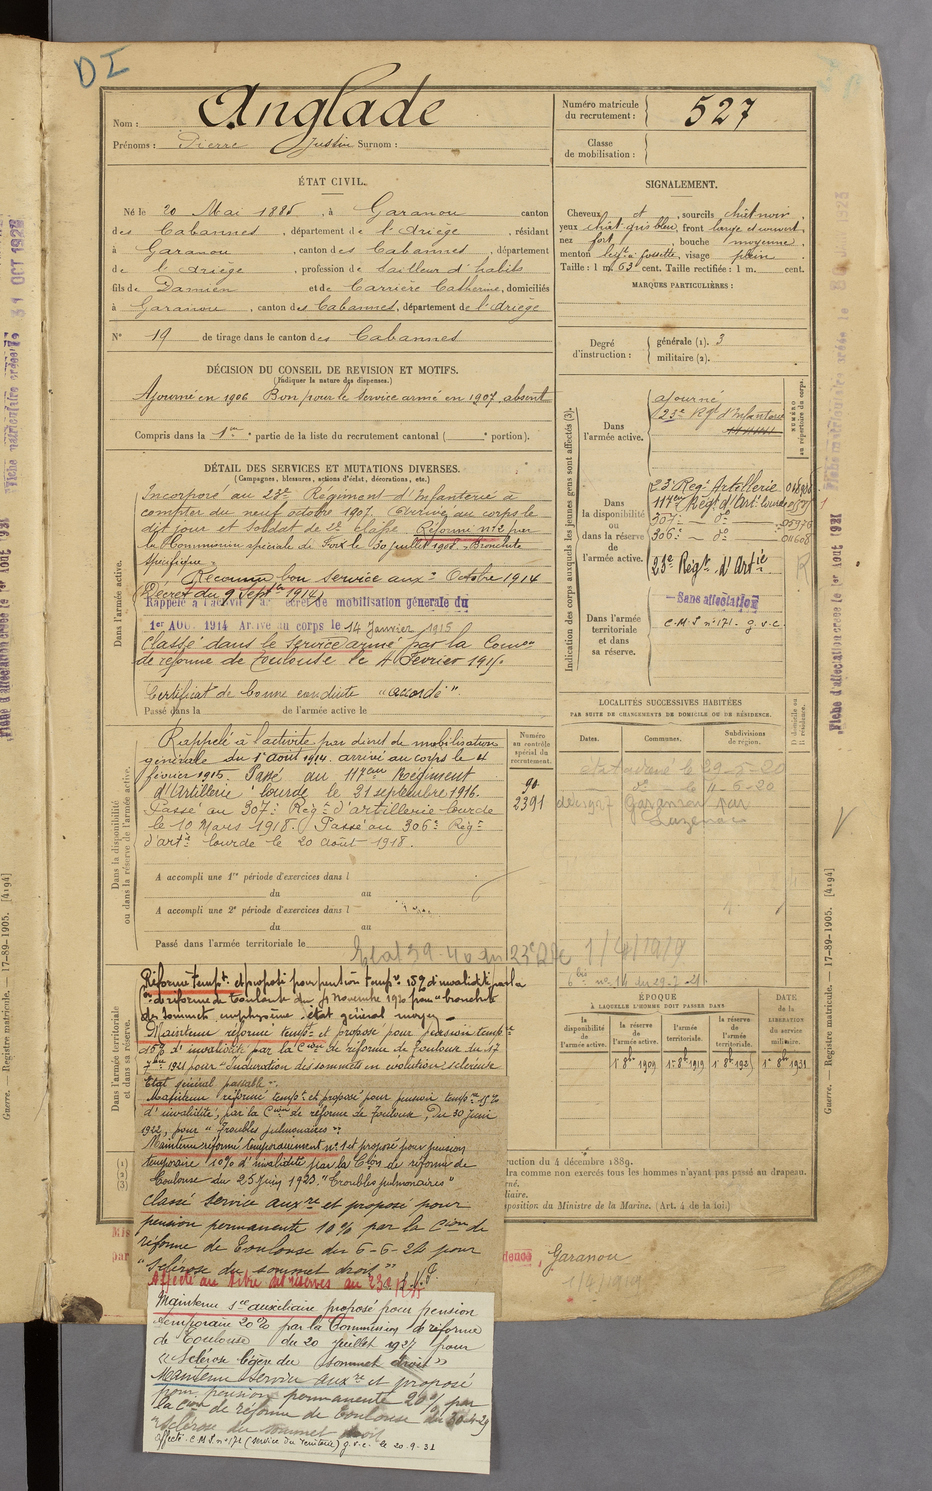 DI
Nom : Anglade
Prénoms : Pierre Justin Surnom :
Numéro matricule du recrutement : 527
Classe de mobilisation :
ÉTAT CIVIL.
Né le 20 Mai 1885, à Garanou canton
des Cabannes, département de l'Ariège, résidant
à Garanou, canton des Cabannes, département
de l'Ariège, profession de tailleur d'habits
fils de Damien et de Carrière Catherine, domiciliés
à Garanou, canton des Cabannes, département de l'Ariège
N° 19 de tirage dans le canton des Cabannes
SIGNALEMENT.
Cheveux et, sourcils chât noir,
yeux chât gris bleu, front large et couvert,
nez fort, bouche moyenne,
menton à fossette, visage plein
Taille : 1 m. 63 cent. Taille rectifiée : 1 m. cent.
MARQUES PARTICULIÈRES :
Degré d'instruction : générale (1). 3
militaire (2).
DÉCISION DU CONSEIL DE REVISION ET MOTIFS.
(Indiquer la nature des dispenses.)
Ajourné en 1906 Bon pour le service armé en 1907. absent
Compris dans la 1re partie de la liste du recrutement cantonal ( portion).
DÉTAIL DES SERVICES ET MUTATIONS DIVERSES.
(Campagnes, blessures, actions d'éclat, décorations, etc.)
Dans l'armée active.
Incorporé au 23e Régiment d'Infanterie à
compter du neuf octobre 1907. Arrivé au corps le
dit jour et soldat de 2e classe. Réformé n°2 par
la Commission spéciale de Foix le 30 juillet 1908. Bronchite
spécifique.
Reconnu bon service aux: Octobre 1914
(Décret du 9 Sept 1914)
Rappelé à l'activité décret de mobilisation générale du
1er AOU. 1914 Arrivé au corps le 14 Janvier 1915
Classé dans le service armé par la Comon
de réforme de Toulouse le 4 Février 1915.
Certificat de bonne conduite "accordé".
Passé dans la de l'armée active le
Dans la disponibilité ou dans la réserve de l'armée active.
Rappelé à l'activité par décret de mobilisation
générale du 1er août 1914. arrivé au corps le 4
février 1915. Passé au 117ème Régiment
d'Artillerie lourde le 21 septembre 1916.
Passé au 307e Régt d'artillerie lourde
le 10 Mars 1918. Passé au 306e Régt
d'artie lourde le 20 août 1918.
A accompli une 1re période d'exercices dans l
du au
A accompli une 2e période d'exercices dans l
du au
Passé dans l'armée territoriale le
Numéro au contrôle spécial du recrutement.
90
2391
Indication des corps auxquels les jeunes gens sont affectés (3).
NUMÉRO au répertoire du corps.
Dans l'armée active.
ajourné
23e Rgt d'Infanterie
Dans la disponibilité ou dans la réserve de l'armée active.
23 Régt Artillerie
117e Régt d'Art lourde
307e d°
306e d°
23e Régt d'Artie
Dans l'armée territoriale et dans sa réserve.
Sans affectation
C.M.S n°171. g.v.c.
LOCALITÉS SUCCESSIVES HABITÉES
PAR SUITE DE CHANGEMENTS DE DOMICILE OU DE RÉSIDENCE.
Dates. Communes. Subdivisions de région. D domicile ou R résidence.
le 29-5-20
d° le 11-6-20
1927 Garanou par
Luzenac
1/4/1919
ÉPOQUE
À LAQUELLE L'HOMME DOIT PASSER DANS
la disponibilité de l'armée active. la réserve de l'armée active. l'armée territoriale. la réserve de l'armée territoriale.
DATE de la LIBÉRATION du service militaire.
1er 8bre 1909 1er 8bre 1919 1er 8bre 192 1er 8bre 1931
Dans l'armée territoriale et dans sa réserve.
Réforme tempre et proposé pour pension tempre 15% d'invalidité par la
Con de réforme de Toulouse du 4 novembre 1920 pour "bronchite
des sommets, emphysème, état général moyen
Maintenu réformé tempt et proposé pour pension tempre
15% d'invalidité par la Cion de réforme de Toulouse du 17
7bre 1921 pour "Induration des sommets en évolution scléreuse
Etat général passable".
Maintenu réformé tempt et proposé pour pension tempre 15%
d'invalidité, par la Cion de réforme de Toulouse, du 30 Juin
1922, pour "Troubles pulmonaires".
Maintenu réformé temporairement n°1 et proposé pour pension
temporaire 10% d'invalidité par la Cion de réforme de
Toulouse du 25 Juin 1923. "Troubles pulmonaires"
Classé service auxre et proposé pour
pension permanente 10% par la Cion de
réforme de Toulouse du 6-6-24 pour
"Sclérose du sommet droit"
Affecté au titre des réserves au 23e R.A.
Maintenu sce auxiliaire proposé pour pension
temporaire 20% par la Commission de réforme
de Toulouse du 20 juillet 1927 pour
"Sclérose légère du sommet droit"
Maintenu service auxre et proposé
pour pension permanente 20% par
la Cion de réforme de Toulouse du 30-4-29
"Sclérose du sommet droit
Affecté C.M.S n°171 (Service du Territoire) g.v.c. le 20.9.31
(1)
(2)
(3)
ruction du 4 décembre 1889.
dra comme non exercés tous les hommes n'ayant pas passé au drapeau.
position du Ministre de la Marine. (Art. 4 de la loi.)
Garanou
1/4/1919
Guerre. — Registre matricule. — 17-89-1905. [4194]
Fiche d'affectation créée le 1er Aout 1921
Guerre. — Registre matricule. — 17-89-1905. [4194]
Fiche matriculaire créée le 31 OCT 192